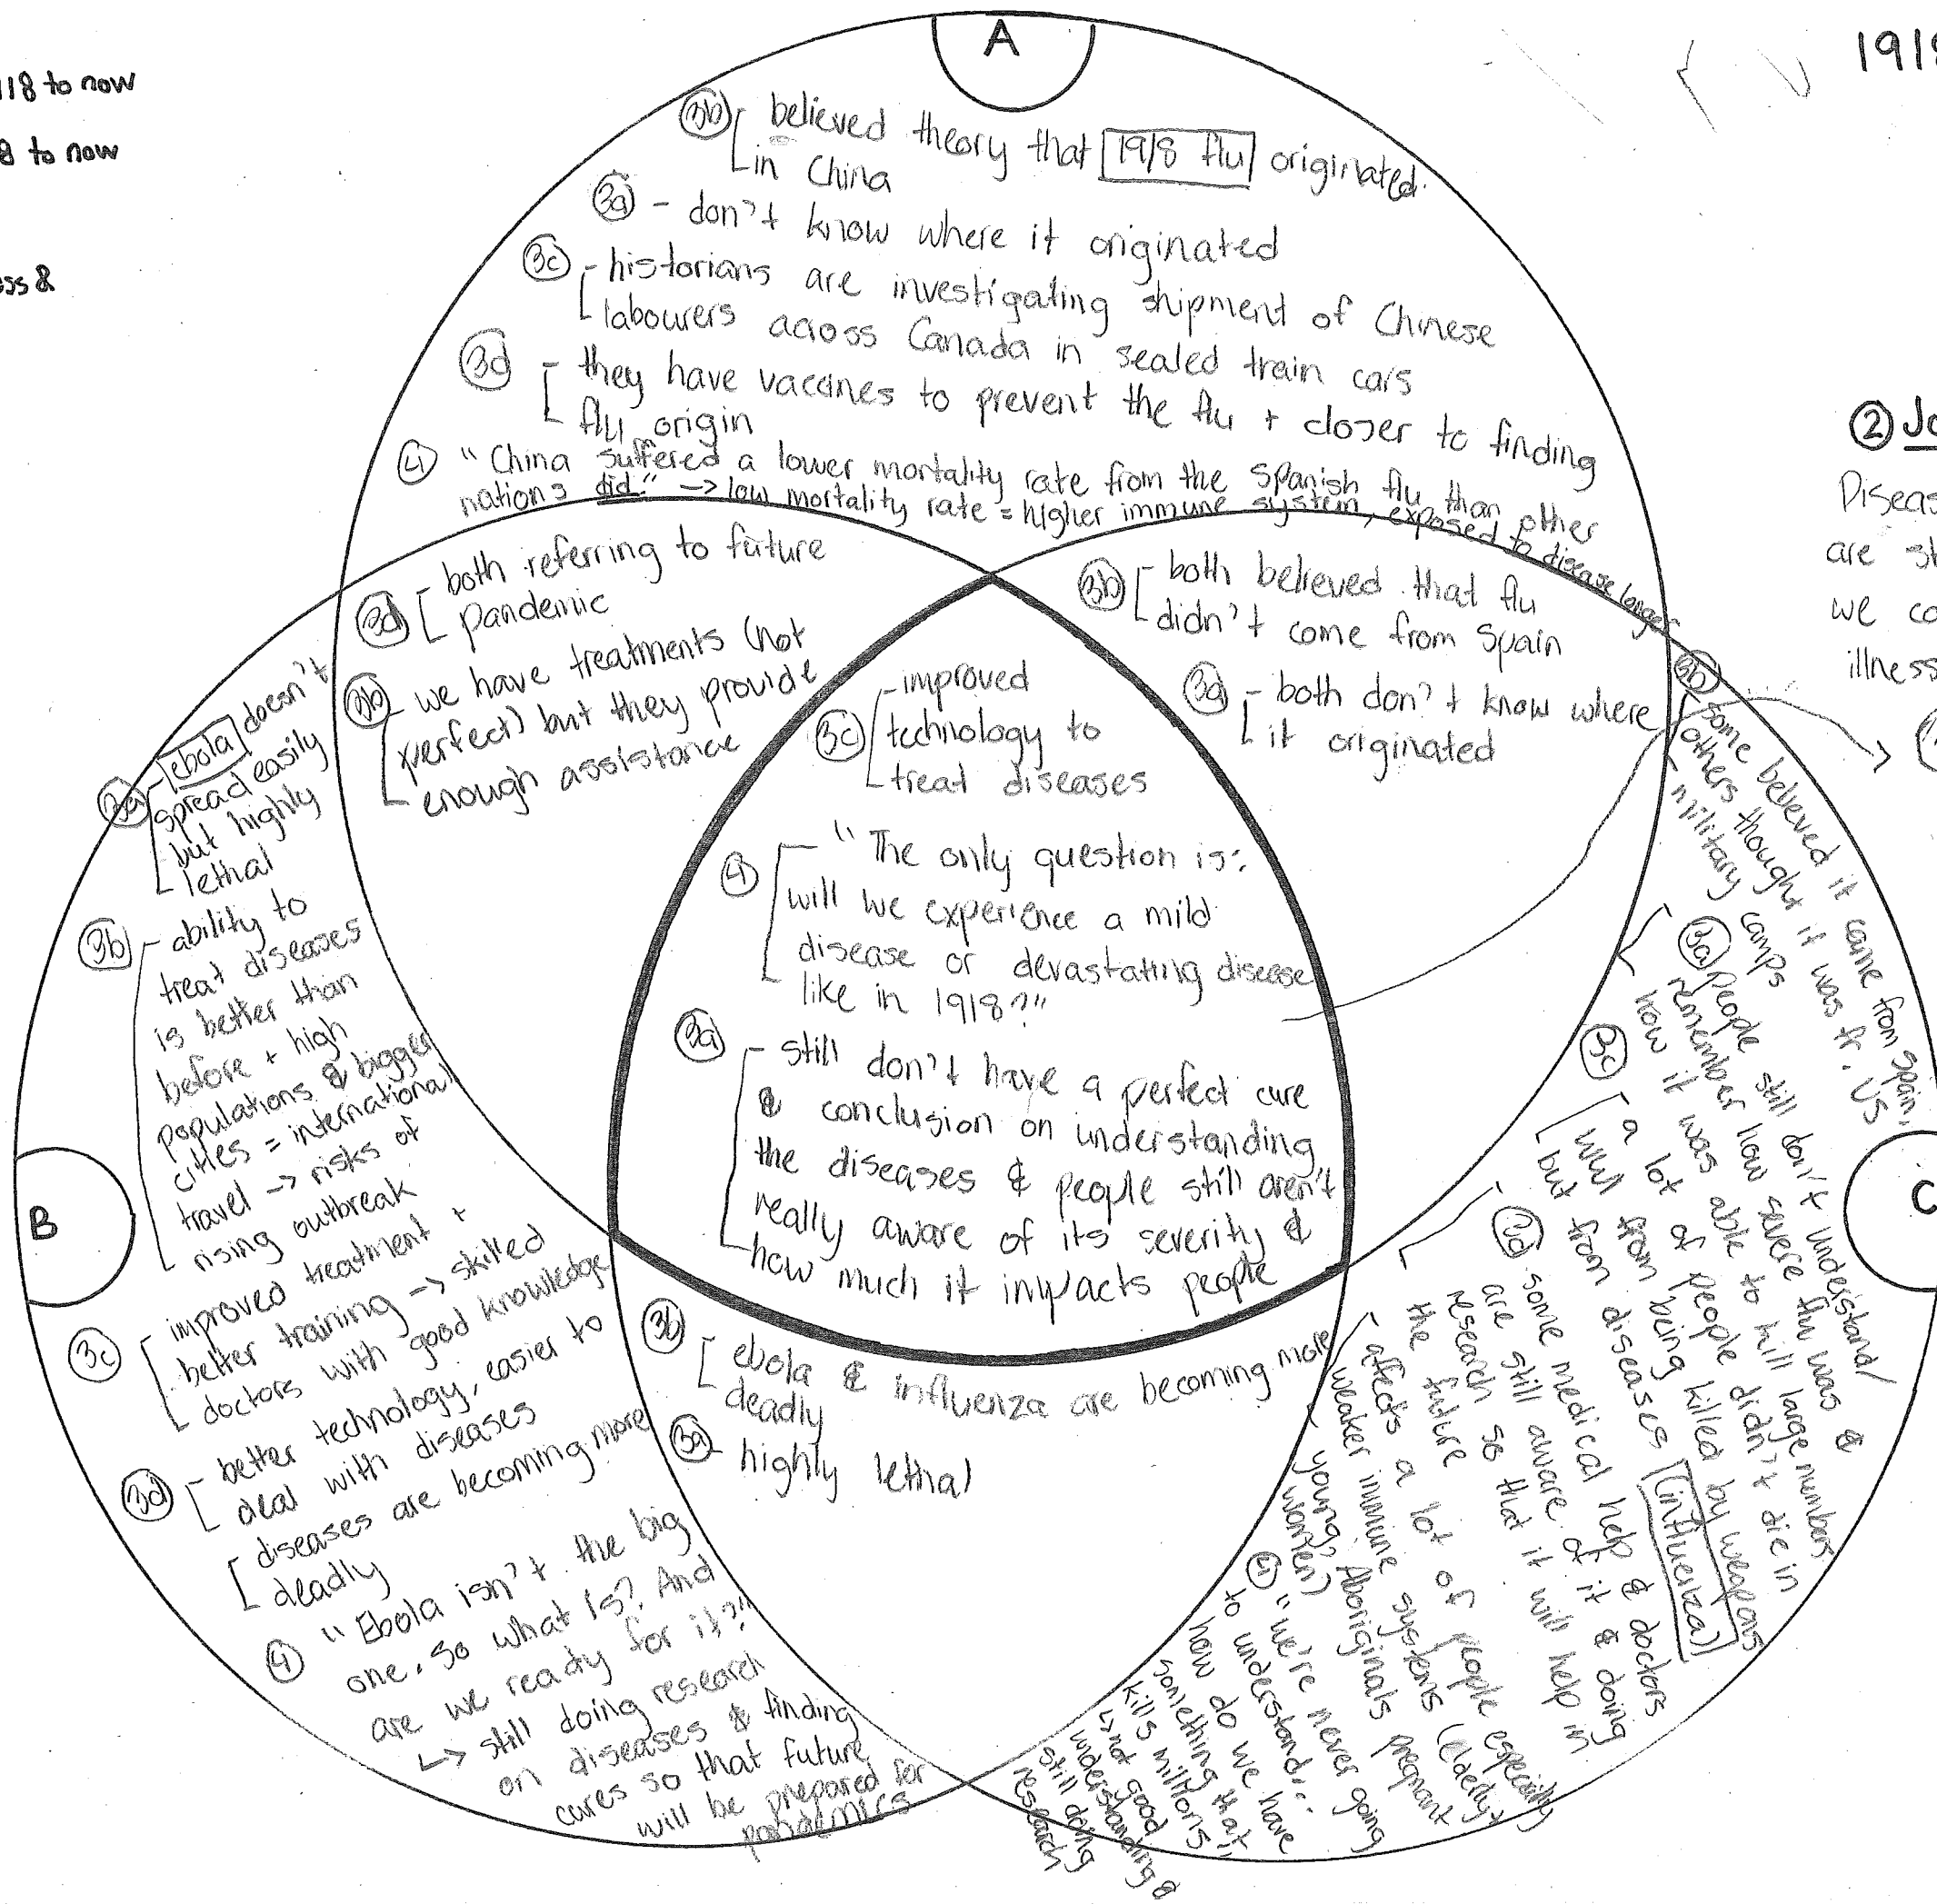 118 to now
8 to now
ss &
A
1918
3b believed theory that 1918 flu originated
in China
3a - don't know where it originated
3c - historians are investigating shipment of Chinese
labourers across Canada in sealed train cars
3d - they have vaccines to prevent the flu + closer to finding
flu origin
4 "China suffered a lower mortality rate from the Spanish flu than other
nations did." -> low mortality rate = higher immune system, exposed to disease longer
3d - both referring to future
pandemic
3b - we have treatments (not
perfect) but they provide
enough assistance
3b both believed that flu
didn't come from Spain
3a - both don't know where
it originated
3c - improved
technology to
treat diseases
4 "The only question is:
will we experience a mild
disease or devastating disease
like in 1918?"
3a - still don't have a perfect cure
& conclusion on understanding
the diseases & people still aren't
really aware of its severity &
how much it impacts people
B
3a - ebola doesn't
spread easily
but highly
lethal
3b - ability to
treat diseases
is better than
before + high
populations & bigger
cities = international
travel -> risks of
rising outbreak
3c improved treatment +
better training -> skilled
doctors with good knowledge
3d - better technology, easier to
deal with diseases
diseases are becoming more
deadly
4 "Ebola isn't the big
one. So what is? And
are we ready for it?"
↳ still doing research
on diseases & finding
cures so that future
will be prepared for
pandemics
3b ebola & influenza are becoming more
deadly
3a - highly lethal
C
3b - some believed it came from Spain,
others thought it was fr. US
military camps
3a people still don't understand/
remember how severe flu was &
how it was able to kill large numbers
3c a lot of people didn't die in
WWI from being killed by weapons
but from diseases (influenza)
3d some medical help & doctors
are still aware of it & doing
research so that it will help in
the future
- affects a lot of people especially
weaker immune systems (elderly +
young, Aboriginals pregnant
women)
4 "we're never going
to understand...
how do we have
something that
kills millions"
↳ not good
understanding &
still doing
research
② Jo
Diseas
are st
we co
illness